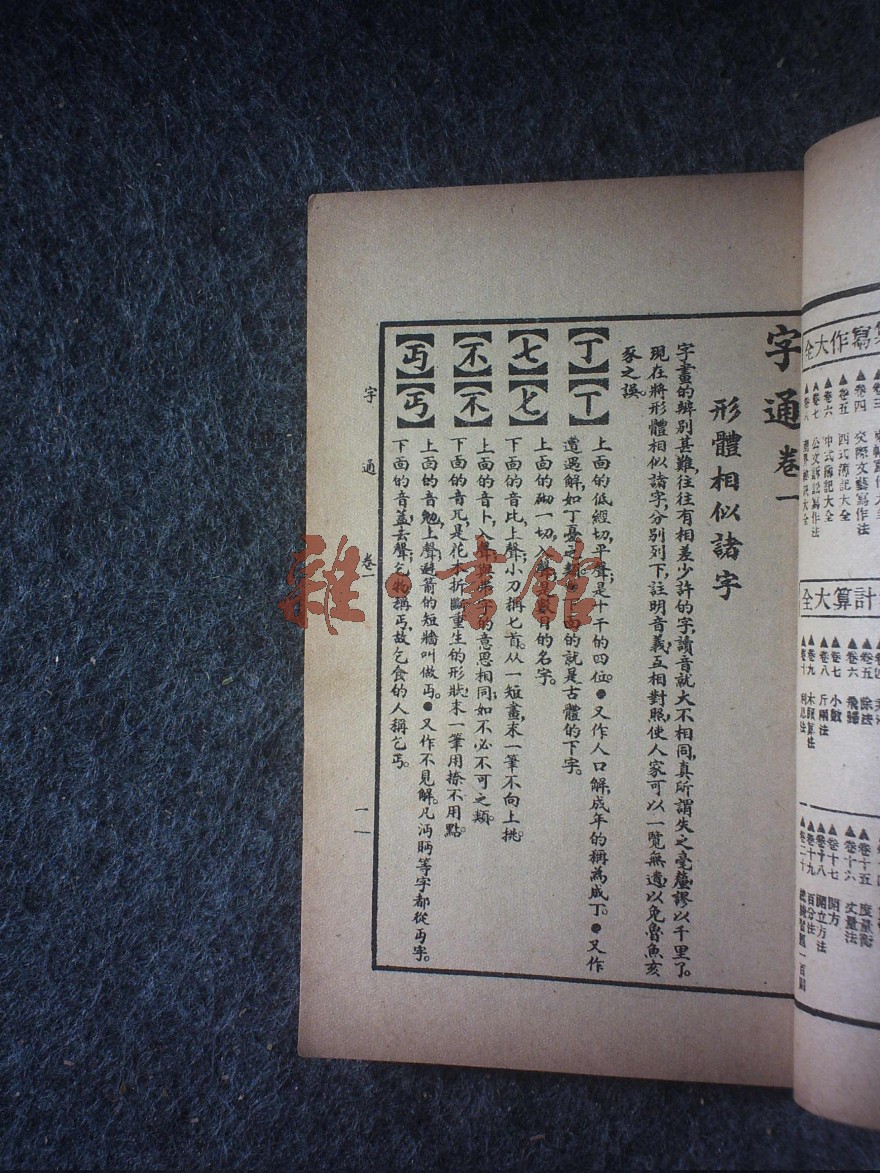 字通卷一
形體相似諸字
字畫的辨別甚難往往有相差少許的字讀音就大不相同真所謂失之毫釐謬以千里了。
現在將形體相似諸字分別列下註明音義互相對照使人家可以一覽無遺以免魯魚亥
豕之誤。
【丁】
【丅】
上面的低經切平聲是十干的四位。●又作人口解成年的稱為成丁。●又作
遭遇解如丁憂之類。●下面的就是古體的下字。
【七】
【匕】
上面的砌一切入聲是數目的名字。
下面的音比上聲小刀稱匕首从一短畫末一筆不向上挑。
【不】
上面的音卜入聲與弗字的意思相同如不必不可之類。
下面的音兀是花木折斷重生的形狀末一筆用捺不用點。
【丏】
【丐】
上面的音勉上聲避箭的短牆叫做丏。●又作不見解凡沔眄等字都從丏字。
下面的音蓋去聲乞物稱丐故乞食的人稱乞丐。
字通 卷一 一
雜·書館
寫作大全
卷四 交際文藝寫作法
▲卷五 西式簿記大全
▲卷六 中式簿記大全
▲卷七 公文訴訟寫作法
計算大全
▲卷六 飛歸
▲卷七 小數
▲卷八 斤兩法
▲卷九 木頭算法
▲卷十五 度量衡
▲卷十六 丈量法
▲卷十七 開方
▲卷十八 開立方法
▲卷十九 百分法